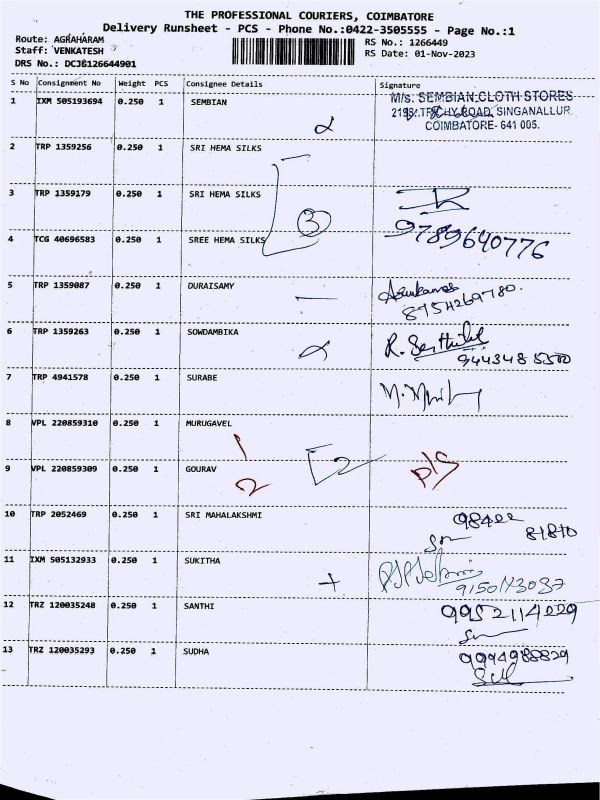 THE PROFESSIONAL COURIERS, COIMBATORE
Delivery Runsheet - PCS - Phone No.:0422-3505555 - Page No.:1
Route: AGRAHARAM
Staff: VENKATESH
DRS No.: DCJB126644901
RS No.: 1266449
RS Date: 01-Nov-2023
S No Consignment No Weight PCS Consignee Details Signature
1 IXM 505193694 0.250 1 SEMBIAN
M/s. SEMBIAN CLOTH STORES
SINGANALLUR.
COIMBATORE- 641 005.
2 TRP 1359256 0.250 1 SRI HEMA SILKS
3 TRP 1359179 0.250 1 SRI HEMA SILKS
3
4 TCG 40696583 0.250 1 SREE HEMA SILKS 9789640776
5 TRP 1359087 0.250 1 DURAISAMY
6 TRP 1359263 0.250 1 SOWDAMBIKA
7 TRP 4941578 0.250 1 SURABE
8 VPL 220859310 0.250 1 MURUGAVEL
1
9 VPL 220859309 0.250 1 GOURAV
2 2 P/S
10 TRP 2052469 0.250 1 SRI MAHALAKSHMI 98422
81810
11 IXM 505132933 0.250 1 SUKITHA
12 TRZ 120035248 0.250 1 SANTHI 9952114029
13 TRZ 120035293 0.250 1 SUDHA 9994988829